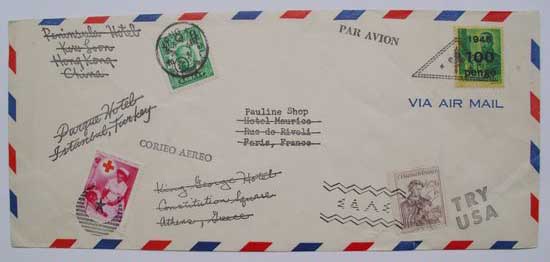 Peninsula Hotel
Kow Loon
Hong Kong
China
PAR AVION
1946
100
pengo
VIA AIR MAIL
Parque Hotel
Istanbul, Turkey
Pauline Shop
Hotel Maurice
Rue de Rivoli
Paris, France
CORIEO AEREO
King George Hotel
Constitution Square
Athens, Greece
TRY
USA